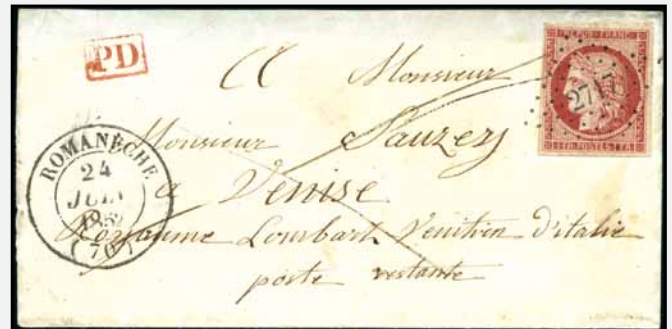 PD
A Monsieur
Monsieur Sauzey
a Venise
Royaume Lombart Venitien d'italie
poste restante
ROMANÈCHE
24
JUIL
1852
(70)
REPUB. FRANC.
2717
1F. POSTES 1F.